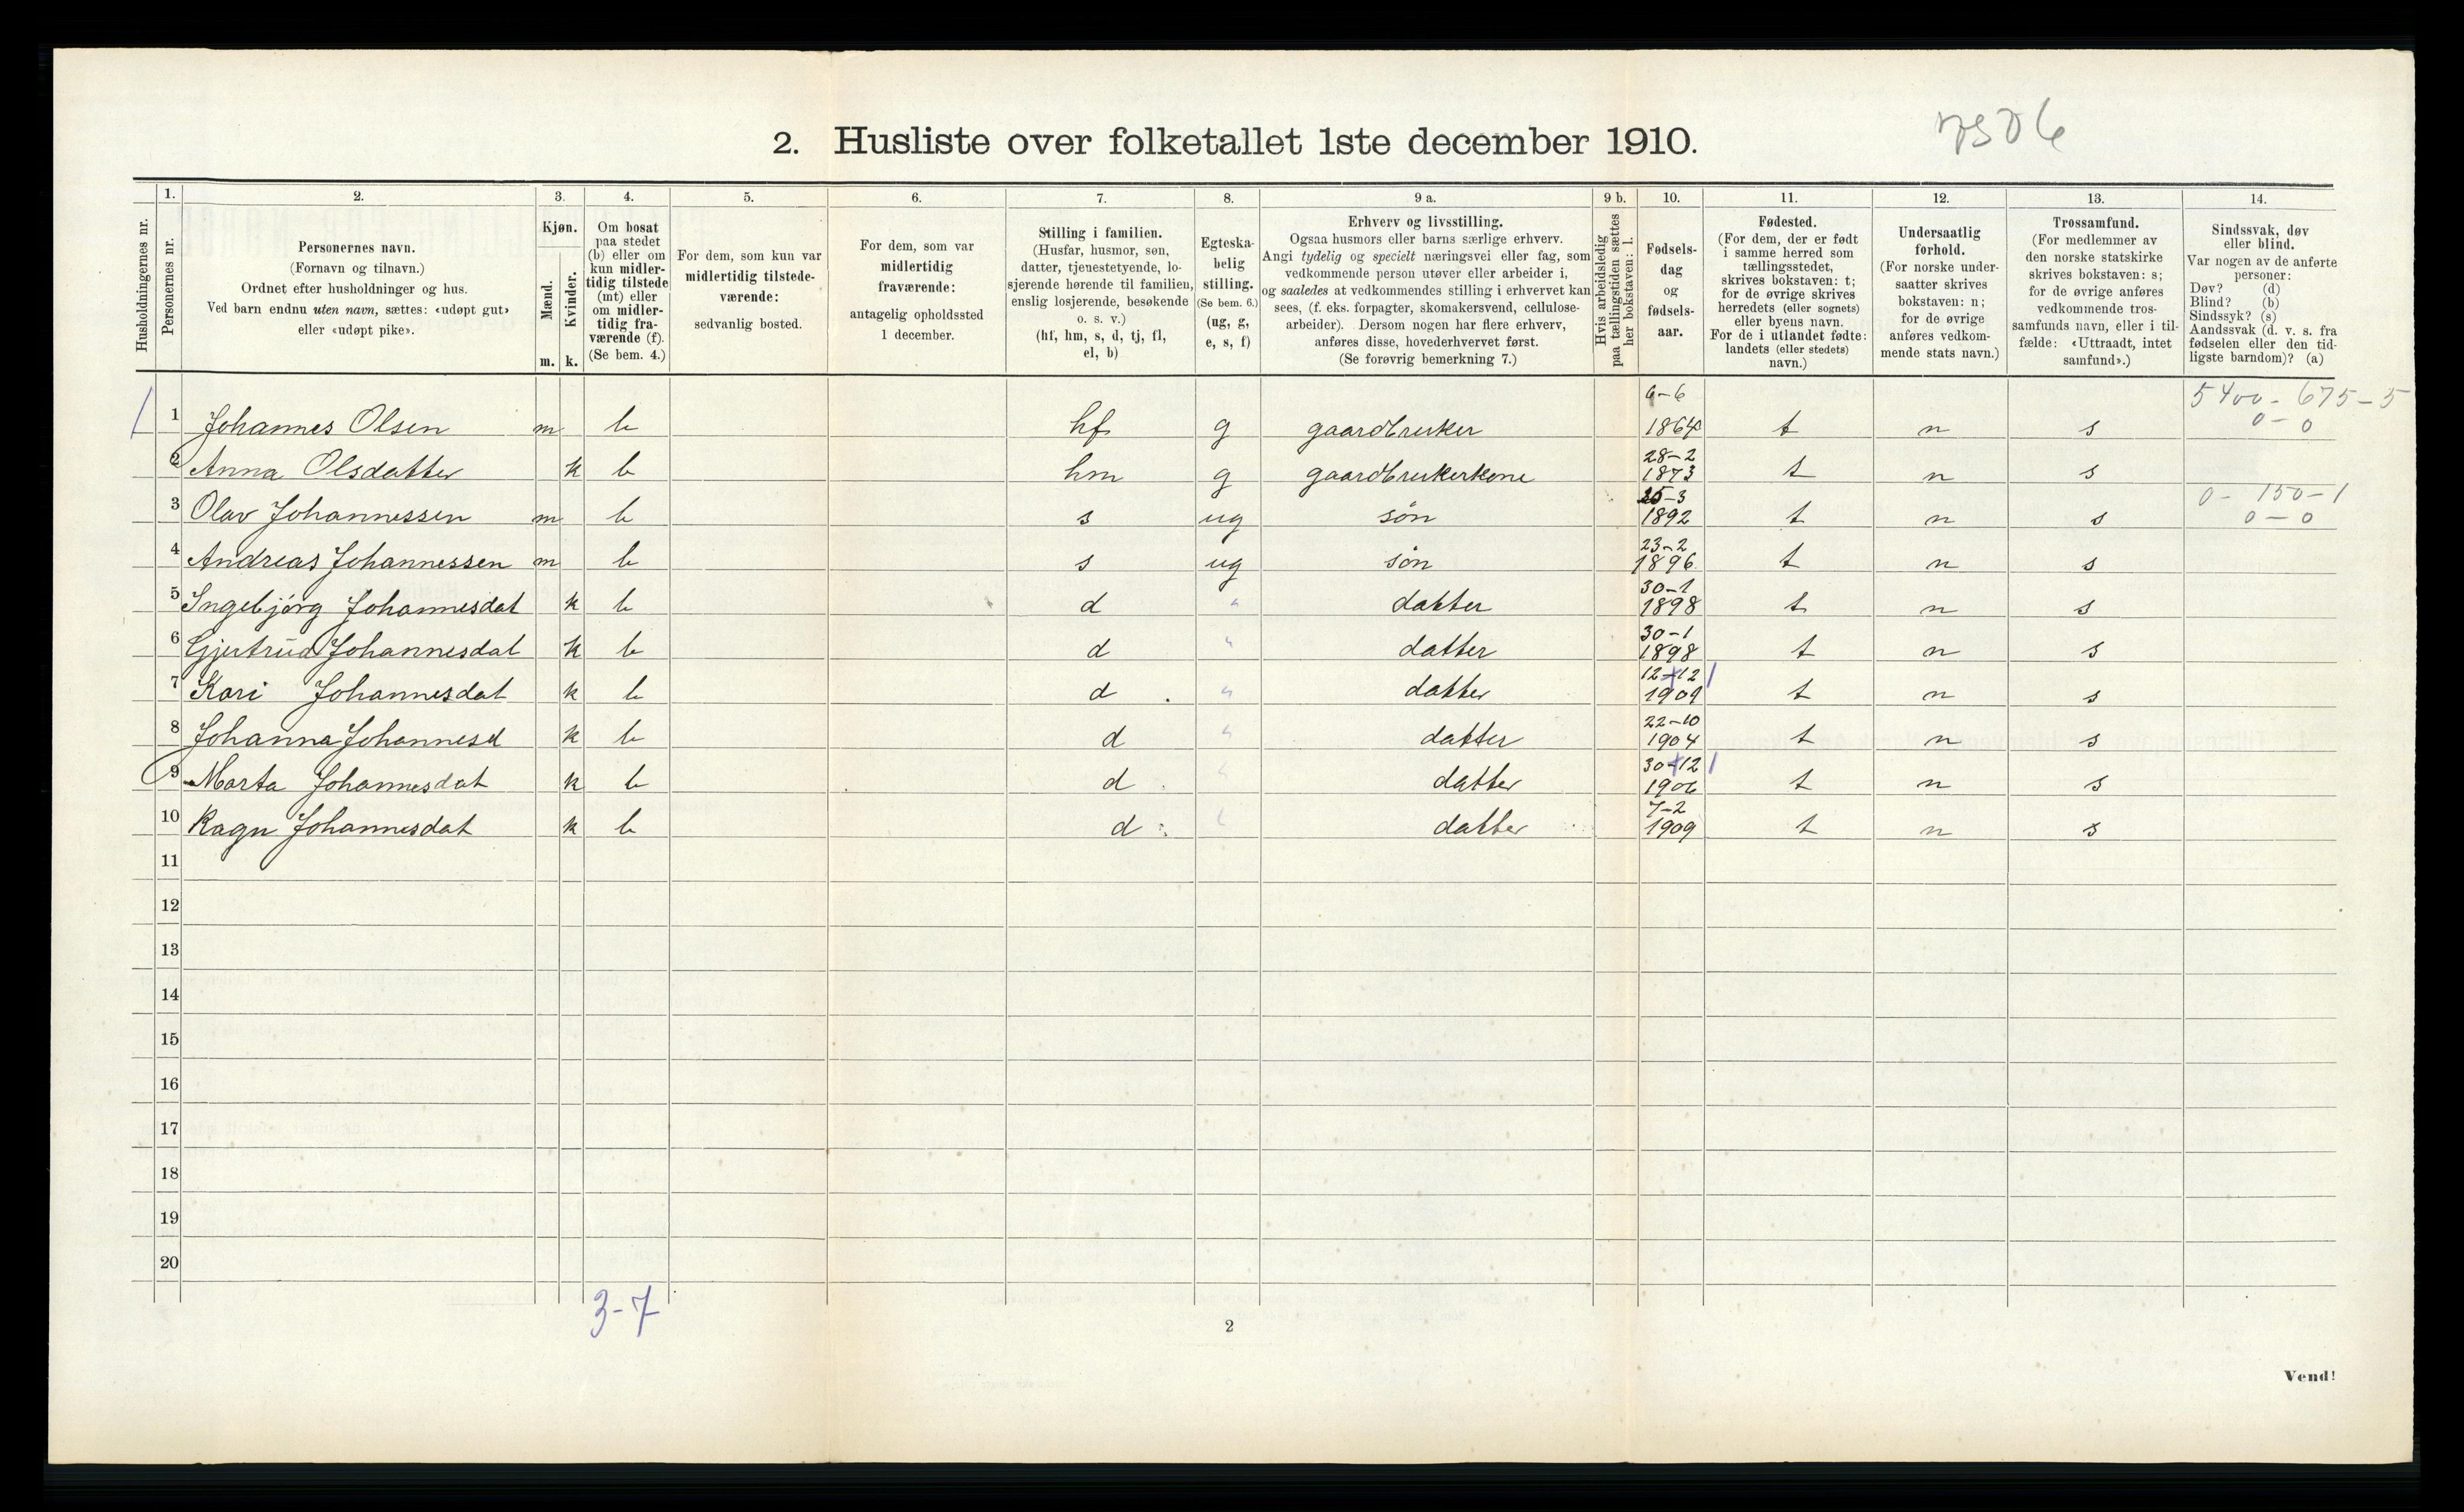 2. Husliste over folketallet 1ste december 1910.
1. 2. 3. 4. 5. 6. 7. 8. 9 a. 9 b. 10. 11. 12. 13. 14.
Husholdningernes nr.
Personernes nr.
Personernes navn.
(Fornavn og tilnavn.)
Ordnet efter husholdninger og hus.
Ved barn endnu uten navn, sættes: «udøpt gut»
eller «udøpt pike».
Kjøn.
Mænd.
Kvinder.
m. k.
Om bosat
paa stedet
(b) eller om
kun midler-
tidig tilstede
(mt) eller
om midler-
tidig fra-
værende (f).
(Se bem. 4.)
For dem, som kun var
midlertidig tilstede-
værende:
sedvanlig bosted.
For dem, som var
midlertidig
fraværende:
antagelig opholdssted
1 december.
Stilling i familien.
(Husfar, husmor, søn,
datter, tjenestetyende, lo-
sjerende hørende til familien,
enslig losjerende, besøkende
o. s. v.)
(hf, hm, s, d, tj, fl,
el, b)
Egteska-
belig
stilling.
(Se bem. 6.)
(ug, g,
e, s, f)
Erhverv og livsstilling.
Ogsaa husmors eller barns særlige erhverv.
Angi tydelig og specielt næringsvei eller fag, som
vedkommende person utøver eller arbeider i,
og saaledes at vedkommendes stilling i erhvervet kan
sees, (f. eks. forpagter, skomakersvend, cellulose-
arbeider). Dersom nogen har flere erhverv,
anføres disse, hovederhvervet først.
(Se forøvrig bemerkning 7.)
Hvis arbeidsledig
paa tællingstiden sættes
her bokstaven: l.
Fødsels-
dag
og
fødsels-
aar.
Fødested.
(For dem, der er født
i samme herred som
tællingsstedet,
skrives bokstaven: t;
for de øvrige skrives
herredets (eller sognets)
eller byens navn.
For de i utlandet fødte:
landets (eller stedets)
navn.)
Undersaatlig
forhold.
(For norske under-
saatter skrives
bokstaven: n;
for de øvrige
anføres vedkom-
mende stats navn.)
Trossamfund.
(For medlemmer av
den norske statskirke
skrives bokstaven: s;
for de øvrige anføres
vedkommende tros-
samfunds navn, eller i til-
fælde: «Uttraadt, intet
samfund».)
Sindssvak, døv
eller blind.
Var nogen av de anførte
personer:
Døv? (d)
Blind? (b)
Sindssyk? (s)
Aandssvak (d. v. s. fra
fødselen eller den tid-
ligste barndom)? (a)
6-6 5400 - 675-5
1 Johannes Olsen m b hf g gaardbruker 1864 t n s 0-0
28-2
2 Anna Olsdatter k b hm g gaardbrukerkone 1873 t n s
25-3 0- 150-1
3 Olav Johannessen m b s ug søn 1892 t n s 0-0
23-2
4 Andreas Johannessen m b s ug søn 1896 t n s
30-1
5 Ingebjørg Johannesdat k b d " datter 1898 t n s
30-1
6 Gjertrud Johannesdat k b d " datter 1898 t n s
12-12
7 Kari Johannesdat k b d " datter 1901 t n s
22-10
8 Johanna Johannesd k b d " datter 1904 t n s
30-12
9 Marta Johannesdat k b d datter 1906 t n s
7-2
10 Ragn Johannesdat k b d datter 1909 t n s
11
12
13
14
15
16
17
18
19
20
3-7
2
Vend!